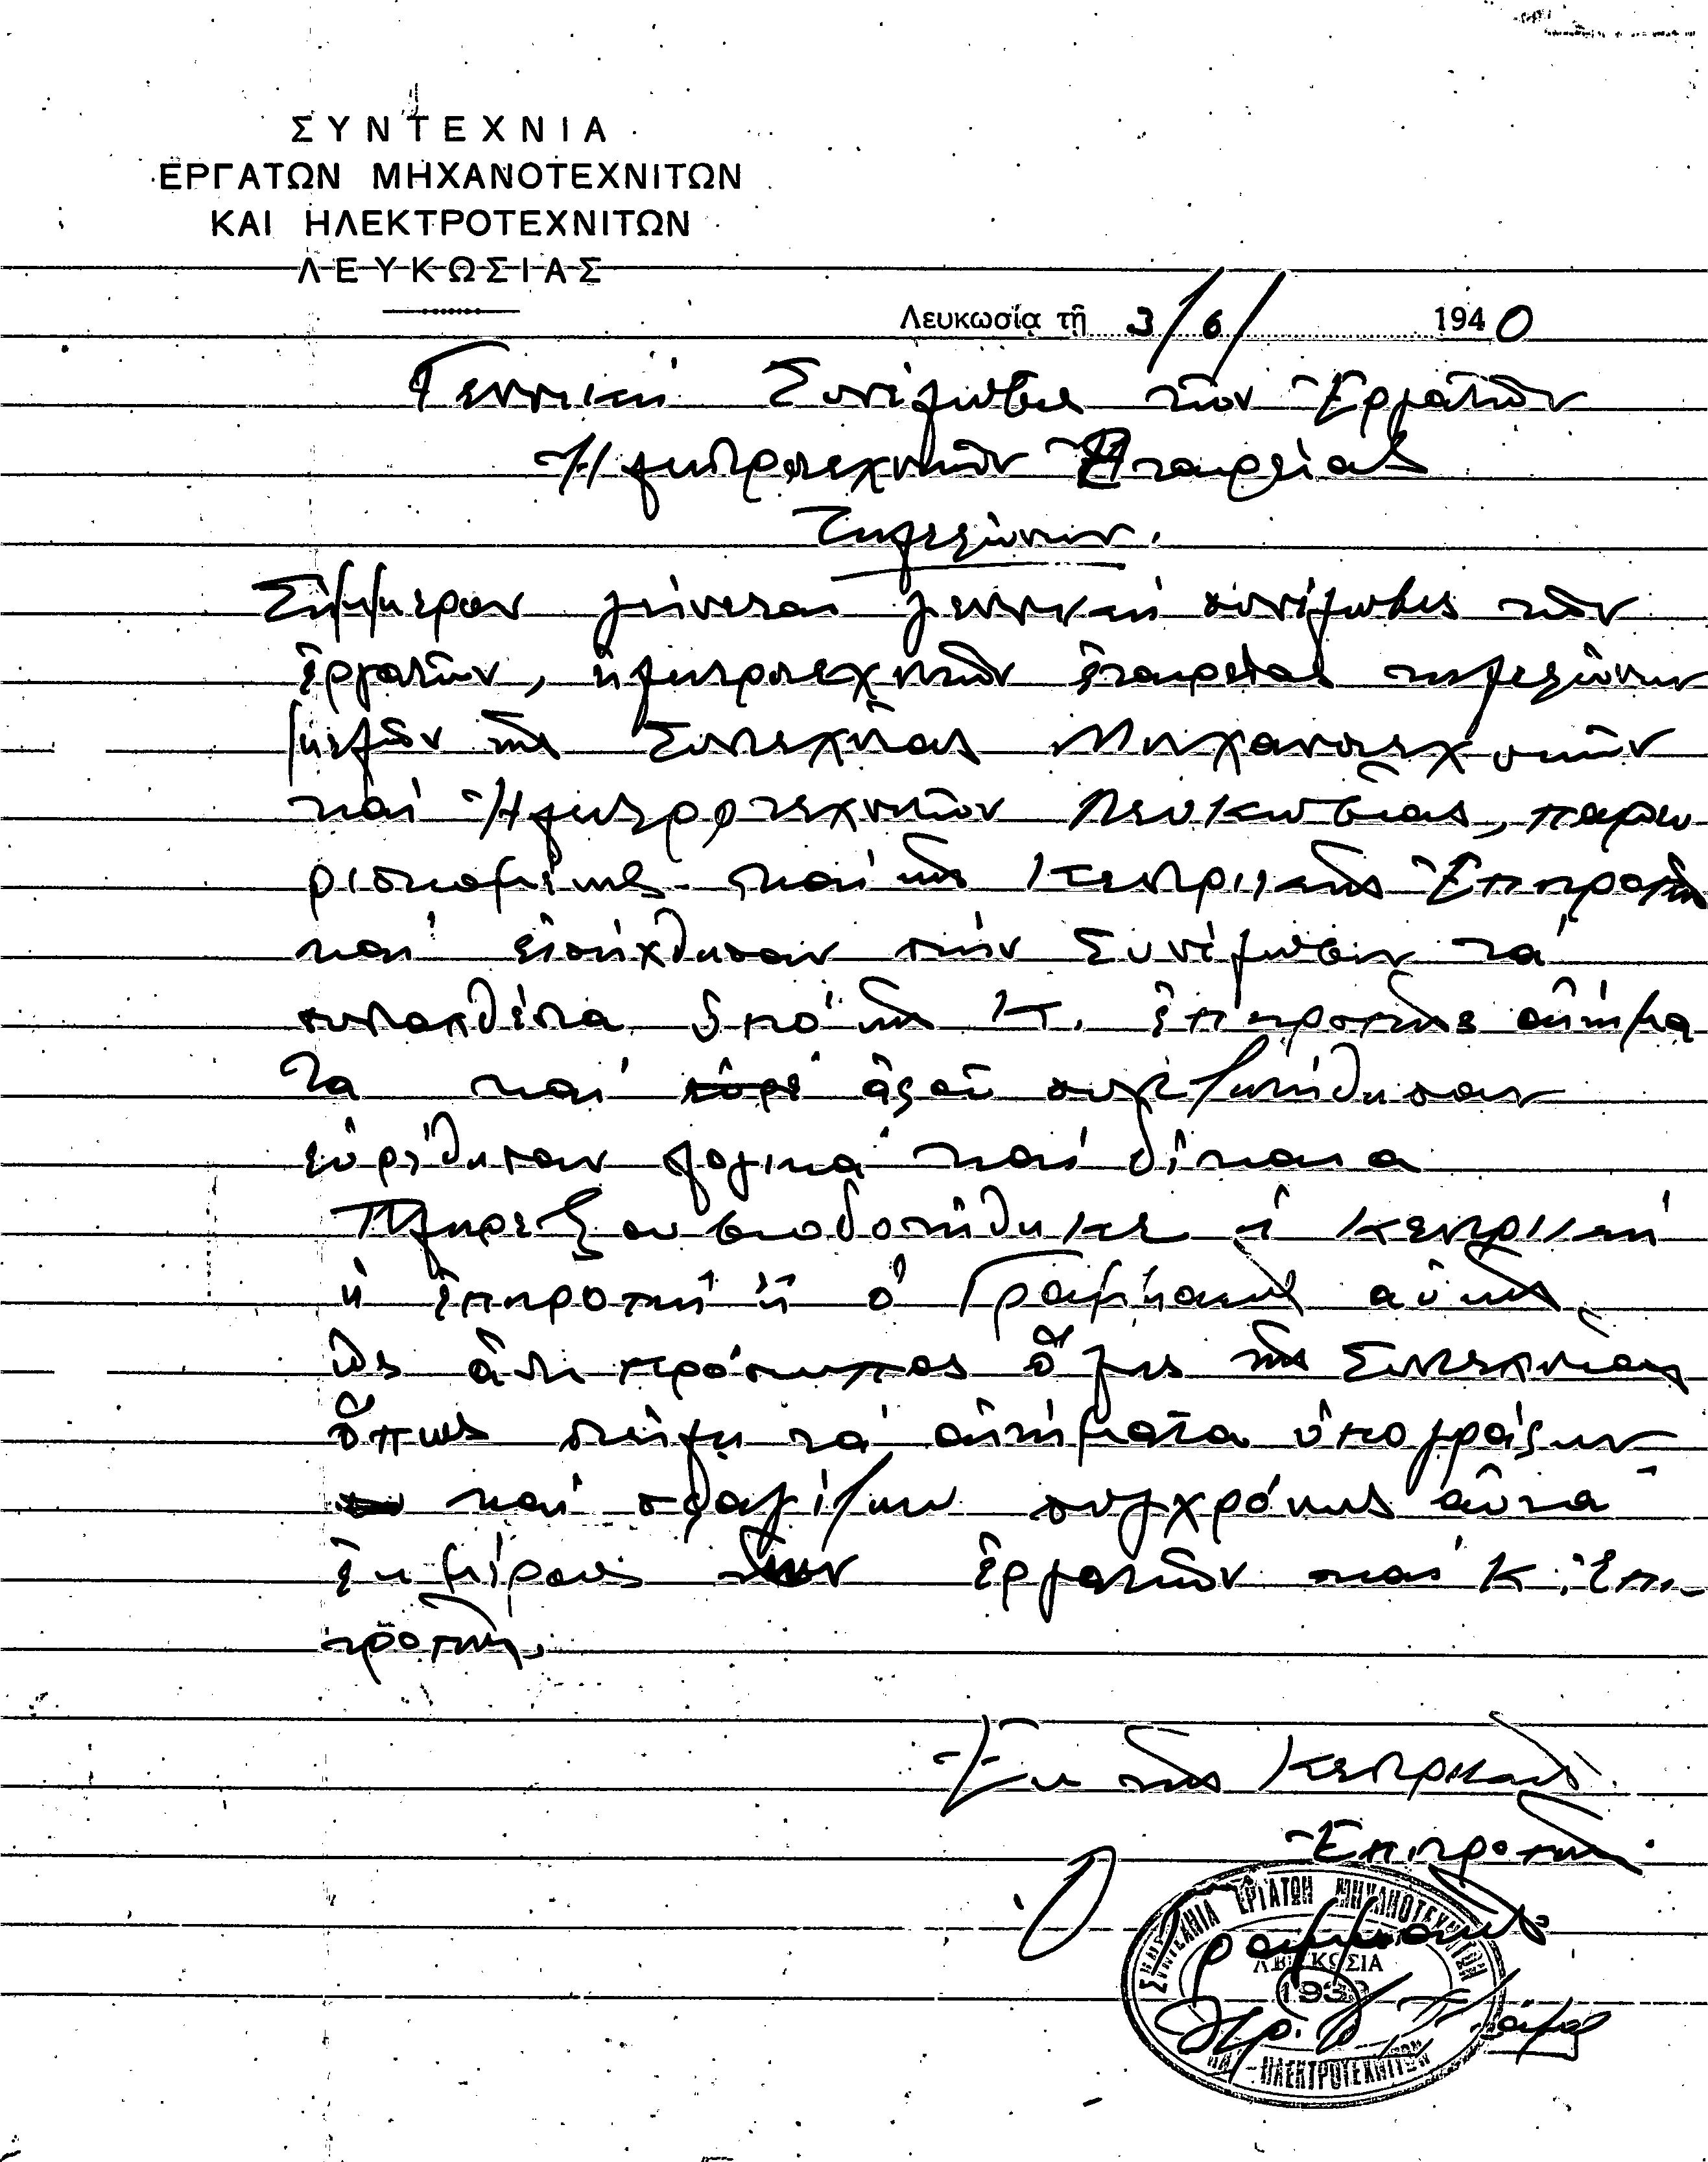 ΣΥΝΤΕΧΝΙΑ
ΕΡΓΑΤΩΝ ΜΗΧΑΝΟΤΕΧΝΙΤΩΝ
ΚΑΙ ΗΛΕΚΤΡΟΤΕΧΝΙΤΩΝ
ΛΕΥΚΩΣΙΑΣ
Λευκωσίᾳ τῇ 3/6/ 1940
Γεννική Συνέλευσις τῶν Ἐργατῶν
Ἠλεκτροτεχνιτῶν Ἑταιρείας
Τηλεφώνων.
Σήμμερον γείνεται γεννική συνέλευσις τῶν
ἐργατῶν, ἠλεκτροτεχνιτῶν ἑταιρείας τηλεφώνων
μελῶν τῆς Συντεχνίας Μηχανοτεχνιτῶν
καί Ἠλεκτροτεχνιτῶν Λευκωσίας, παρευ
ρισκομένης καί τῆς Κεντρικῆς Ἐπιτροπῆς
καί εἰσήχθησαν στήν Συνέλευσιν τά
συνταχθέντα ὑπό τῆς Κ. ἐπιτροπῆς αἰτήμα
τα καί ἀφοῦ συνεζητήθησαν
εὑρέθησαν λογικά καί δίκαια
Πληρεξουσιοδοτήθηκε ἡ κεντρική
ἡ ἐπιτροπή ἤ ὁ Γραμματεύς αὐτῆς
ὡς ἀντιπρόσωπος ὅλης τῆς Συντεχνίας
ὅπως στείλη τά αἰτήματα ὑπογράφων
καί σφραγίζων συγχρόνως αὐτά
ἐκ μέρους τῶν ἐργατῶν καί Κ. Ἐπι-
τροπῆς.
Ἐκ τῆς Κεντρικῆς
Ἐπιτροπῆς.
Ὁ Γραμματεύς
ΣΥΝΤΕΧΝΙΑ ΕΡΓΑΤΩΝ ΜΗΧΑΝΟΤΕΧΝΙΤΩΝ
ΛΕΥΚΩΣΙΑ
ΚΑΙ ΗΛΕΚΤΡΟΤΕΧΝΙΤΩΝ